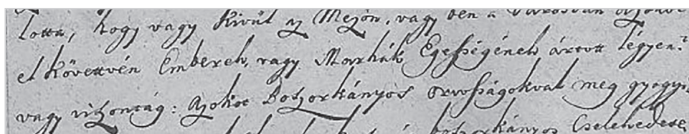 totta, hogy vagy Kivűl az Mezőn, vagy ben a Városban
el Követtvén Emberek, vagy Marhák Egésségének ártott légyen?
vagy viszontág: Azokot Botzorkányos orvosságokval meg gyogyi
botzorkányos Cselekedete